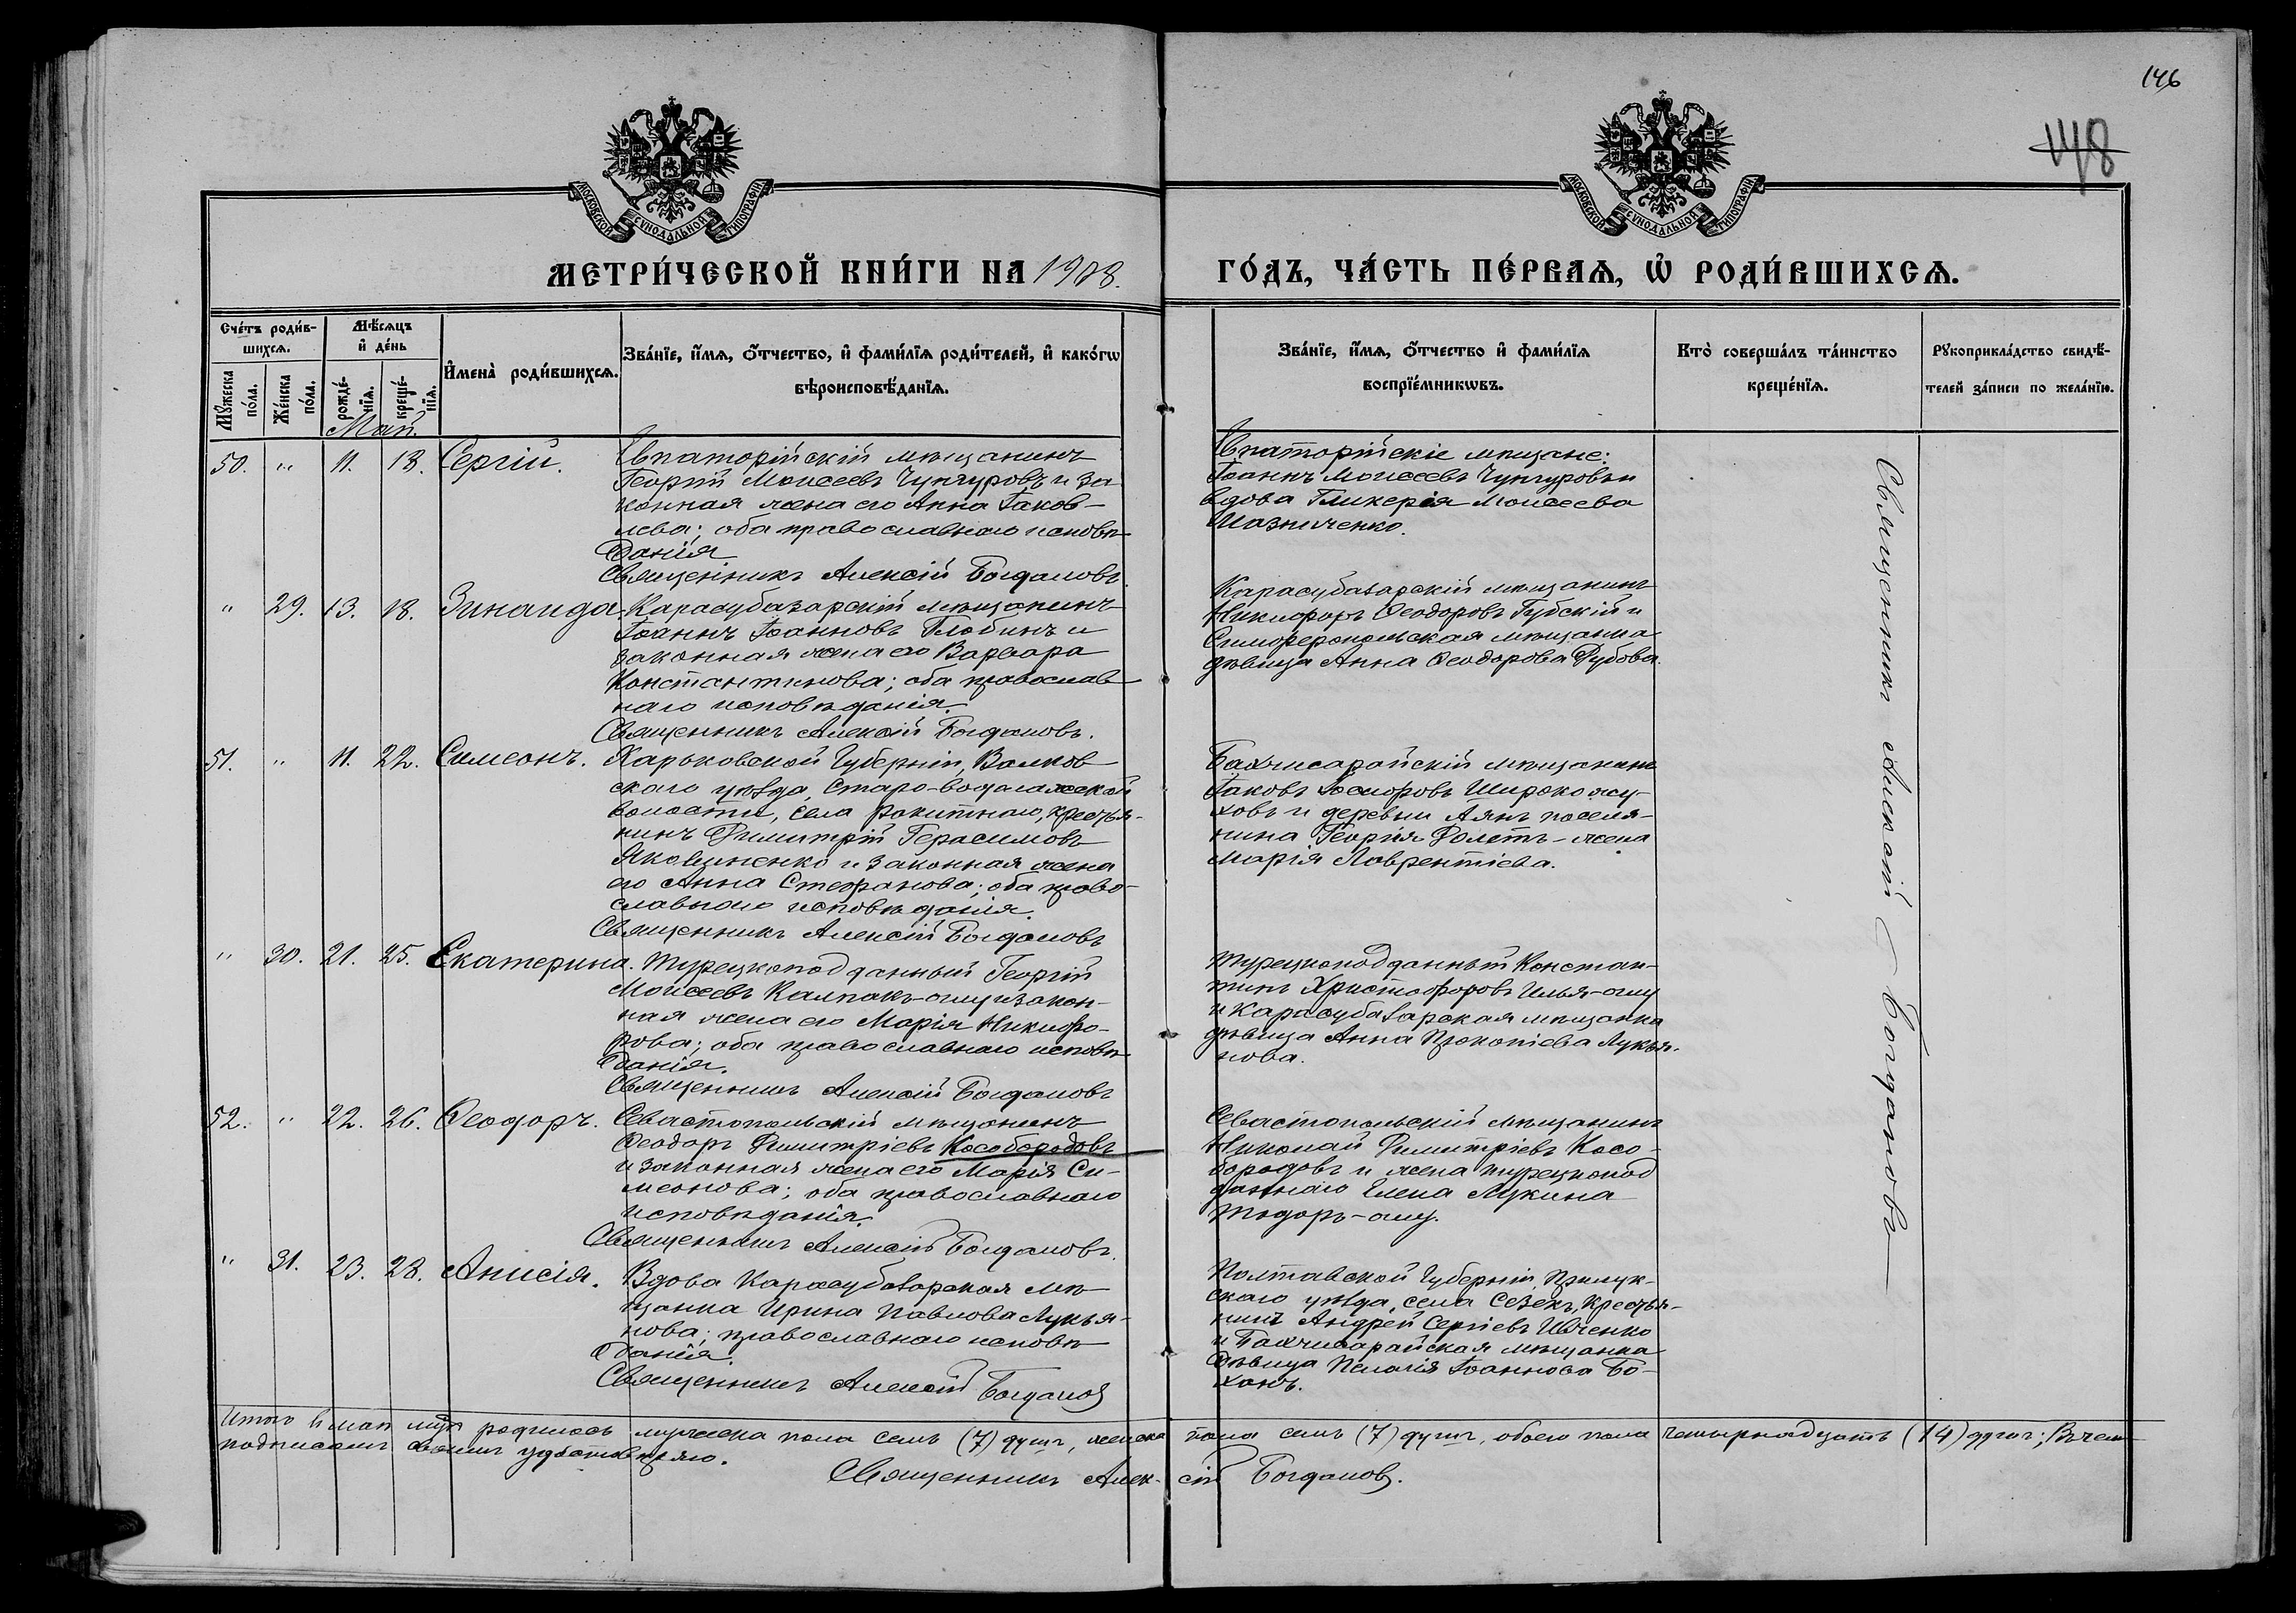 146
148
МОСКОВСКОЙ СѴНОДАЛЬНОЙ ТИПОГРАФІИ
МОСКОВСКОЙ СѴНОДАЛЬНОЙ ТИПОГРАФІИ
МЕТРИ́ЧЕСКОЙ КНИ́ГИ НА 1908. ГО́ДЪ, ЧА́СТЬ ПЕ́РВАѦ, Ѡ҆ РОДИ́ВШИХСѦ.
Сче́тъ роди́в-
шихсѧ.
Мꙋ́жеска по́ла.
Же́нска по́ла.
Мѣ́сѧцъ
и҆ де́нь
рожде́-
нїѧ.
креще́-
нїѧ.
И҆мена̀ роди́вшихсѧ.
Зва́нїе, и҆́мѧ, ѻ҆́тчество, и҆ фами́лїѧ роди́телей, и҆ како́гѡ
вѣроисповѣ́данїѧ.
Зва́нїе, и҆́мѧ, ѻ҆́тчество и҆ фами́лїѧ
воспрїе́мникѡвъ.
Кто̀ соверша́лъ та́инство
креще́нїѧ.
Рꙋкоприкла́дство свидѣ́-
телей за́писи по жела́нїю.
Май.
50. " 11. 18. Сергій.
Евпаторійскій мѣщанинъ
Георгій Моисеевъ Чунгуровъ и за
конная жена его Анна Іаков-
лева; оба православнаго исповѣ
данія
Священникъ Алексій Богдановъ
Евпаторійскіе мѣщане:
Іоаннъ Моисеевъ Чунгуровъ и
вдова Гликерія Моисеева
Мазниченко.
" 29. 13. 18. Зинаида.
Карасубазарскій мѣщанинъ
Іоаннъ Іоанновъ Глобинъ и
законная жена его Варвара
Константинова; оба православ
наго исповѣданія.
Священникъ Алексій Богдановъ.
Карасубазарскій мѣщанинъ
Никифоръ Ѳеодоровъ Губскій и
Симферопольская мѣщанка
дѣвица Анна Ѳеодорова Дубова.
51. " 11. 22. Симеонъ.
Харьковской Губерніи, Валков
скаго уѣзда, Старо-водолажской
волости, села Ракитнаго, крестья-
нинъ Димитрій Герасимовъ
Яковиненко и законная жена
его Анна Стефанова; оба право-
славнаго исповѣданія.
Священникъ Алексій Богдановъ
Бахчисарайскій мѣщанинъ
Іаковъ Іосифовъ Широкожу-
ховъ и деревни Аянъ поселя-
нина Георгія Долетъ - жена
Марія Лаврентіева.
" 30. 21. 25. Екатерина.
Турецкоподданный Георгій
Моисеевъ Калпакъ-оглу и закон-
ная жена его Марія Никифо-
рова; оба православнаго исповѣ
данія.
Священникъ Алексій Богдановъ
Турецкоподданный Констан-
тинъ Христофоровъ Илья-оглу
и Карасубазарская мѣщанка
дѣвица Анна Прокопіева Лукья-
нова.
52. " 22. 26. Ѳеодоръ.
Севастопольскій мѣщанинъ
Ѳеодоръ Димитріевъ Кособородовъ
и законная жена его Марія Си-
меонова; оба православнаго
исповѣданія.
Священникъ Алексій Богдановъ.
Севастопольскій мѣщанинъ
Николай Димитріевъ Косо-
бородовъ и жена турецкопод
даннаго Елена Лукина
Тодоръ-оглу.
" 31. 23. 28. Анисія.
Вдова Карасубазарская мѣ
щанка Ирина Павлова Лукья-
нова; православнаго исповѣ
данія.
Священникъ Алексій Богдановъ
Полтавской Губерніи, Прилук-
скаго уѣзда, села Сезекъ, крестья-
нинъ Андрей Сергіевъ Ивченко
и Бахчисарайская мѣщанка
дѣвица Пелагія Іоаннова Бо-
ханъ.
Священникъ Алексій Богдановъ
Итого въ маѣ мѣс. родилось мужеска пола семь (7) душъ, женска пола семь (7) душъ, обоего пола четырнадцать (14) душъ; въ чемъ
подписомъ своимъ удостовѣряю.
Священникъ Алексій Богдановъ.